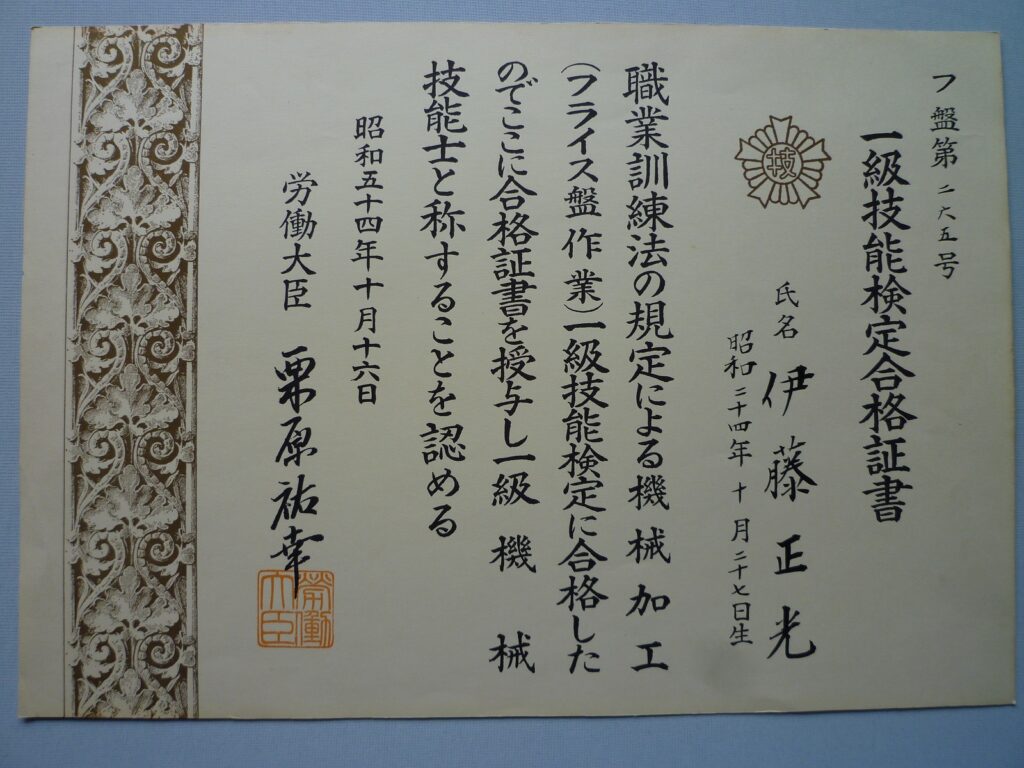 フ盤第二六五号
一級技能検定合格証書
技
氏名 伊藤正光
昭和二十四年十月二十七日生
職業訓練法の規定による機械加工
(フライス盤作業)一級技能検定に合格した
のでここに合格証書を授与し一級機械
技能士と称することを認める
昭和五十四年十月十六日
労働大臣 栗原祐幸
労働大臣